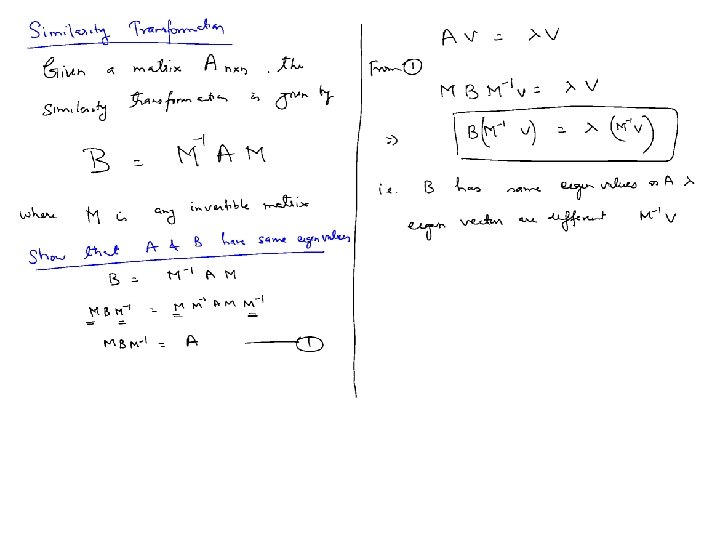 Similarity Transformation
Given a matrix A n×n, the
Similarity transformation is given by
B = M⁻¹ A M
where M is any invertible matrix
Show that A & B have same eigenvalues
B = M⁻¹ A M
M B M⁻¹ = M M⁻¹ A M M⁻¹
M B M⁻¹ = A ——— ①
A V = λ V
From ①
M B M⁻¹ V = λ V
⇒ B(M⁻¹ V) = λ (M⁻¹ V)
i.e. B has same eigen values as A λ
eigen vector are different M⁻¹ V